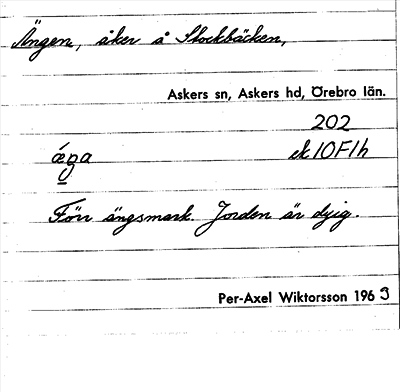 Ängen, åker å Stockbäcken,
Askers sn, Askers hd, Örebro län.
202
ek 10F1h
Förr ängsmark. Jorden är dyig.
Per-Axel Wiktorsson 1963